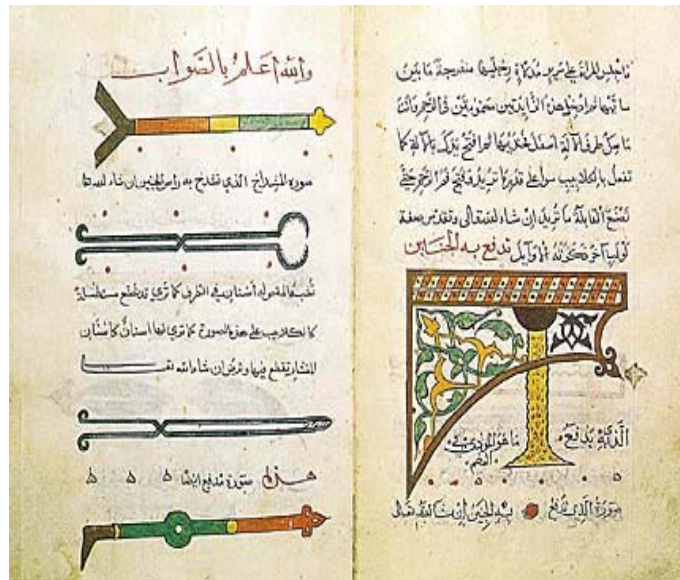 فاجلس المراة على سرير مدلاة رجليها منفرجة ما بين
ساقيها ثم ادخل هذين الزايدتين مضمومتين في الرحم وانت
ماسك طرف الالة اسفل فخذيها ثم افتح يدك بالالة كما
تفعل بالكلاليب سوا على قدر ما تريد فتح فم الرحم حتى
تصنع القابلة ما تريد ان شاء الله تعالى وتقدس صفة
لولب آخر ذكرته الاوايل تدفع به الجنين
الذي يدفع
صورة الذي تدفع به الجنين ان شا الله تعالى
والله اعلم بالصواب
صورة المشداخ الذي تشدخ به راس الجنين ان شاء الله تعا
تشبه المقص له أسنان في الطرف كما ترى قد تصنع مستطيلة
كالكلاليب على هذه الصورة كما ترى لها اسنان كاسنان
المنشار تقطع فيها وترض ان شاء الله تعا
هذه صورة مدفع ايضا